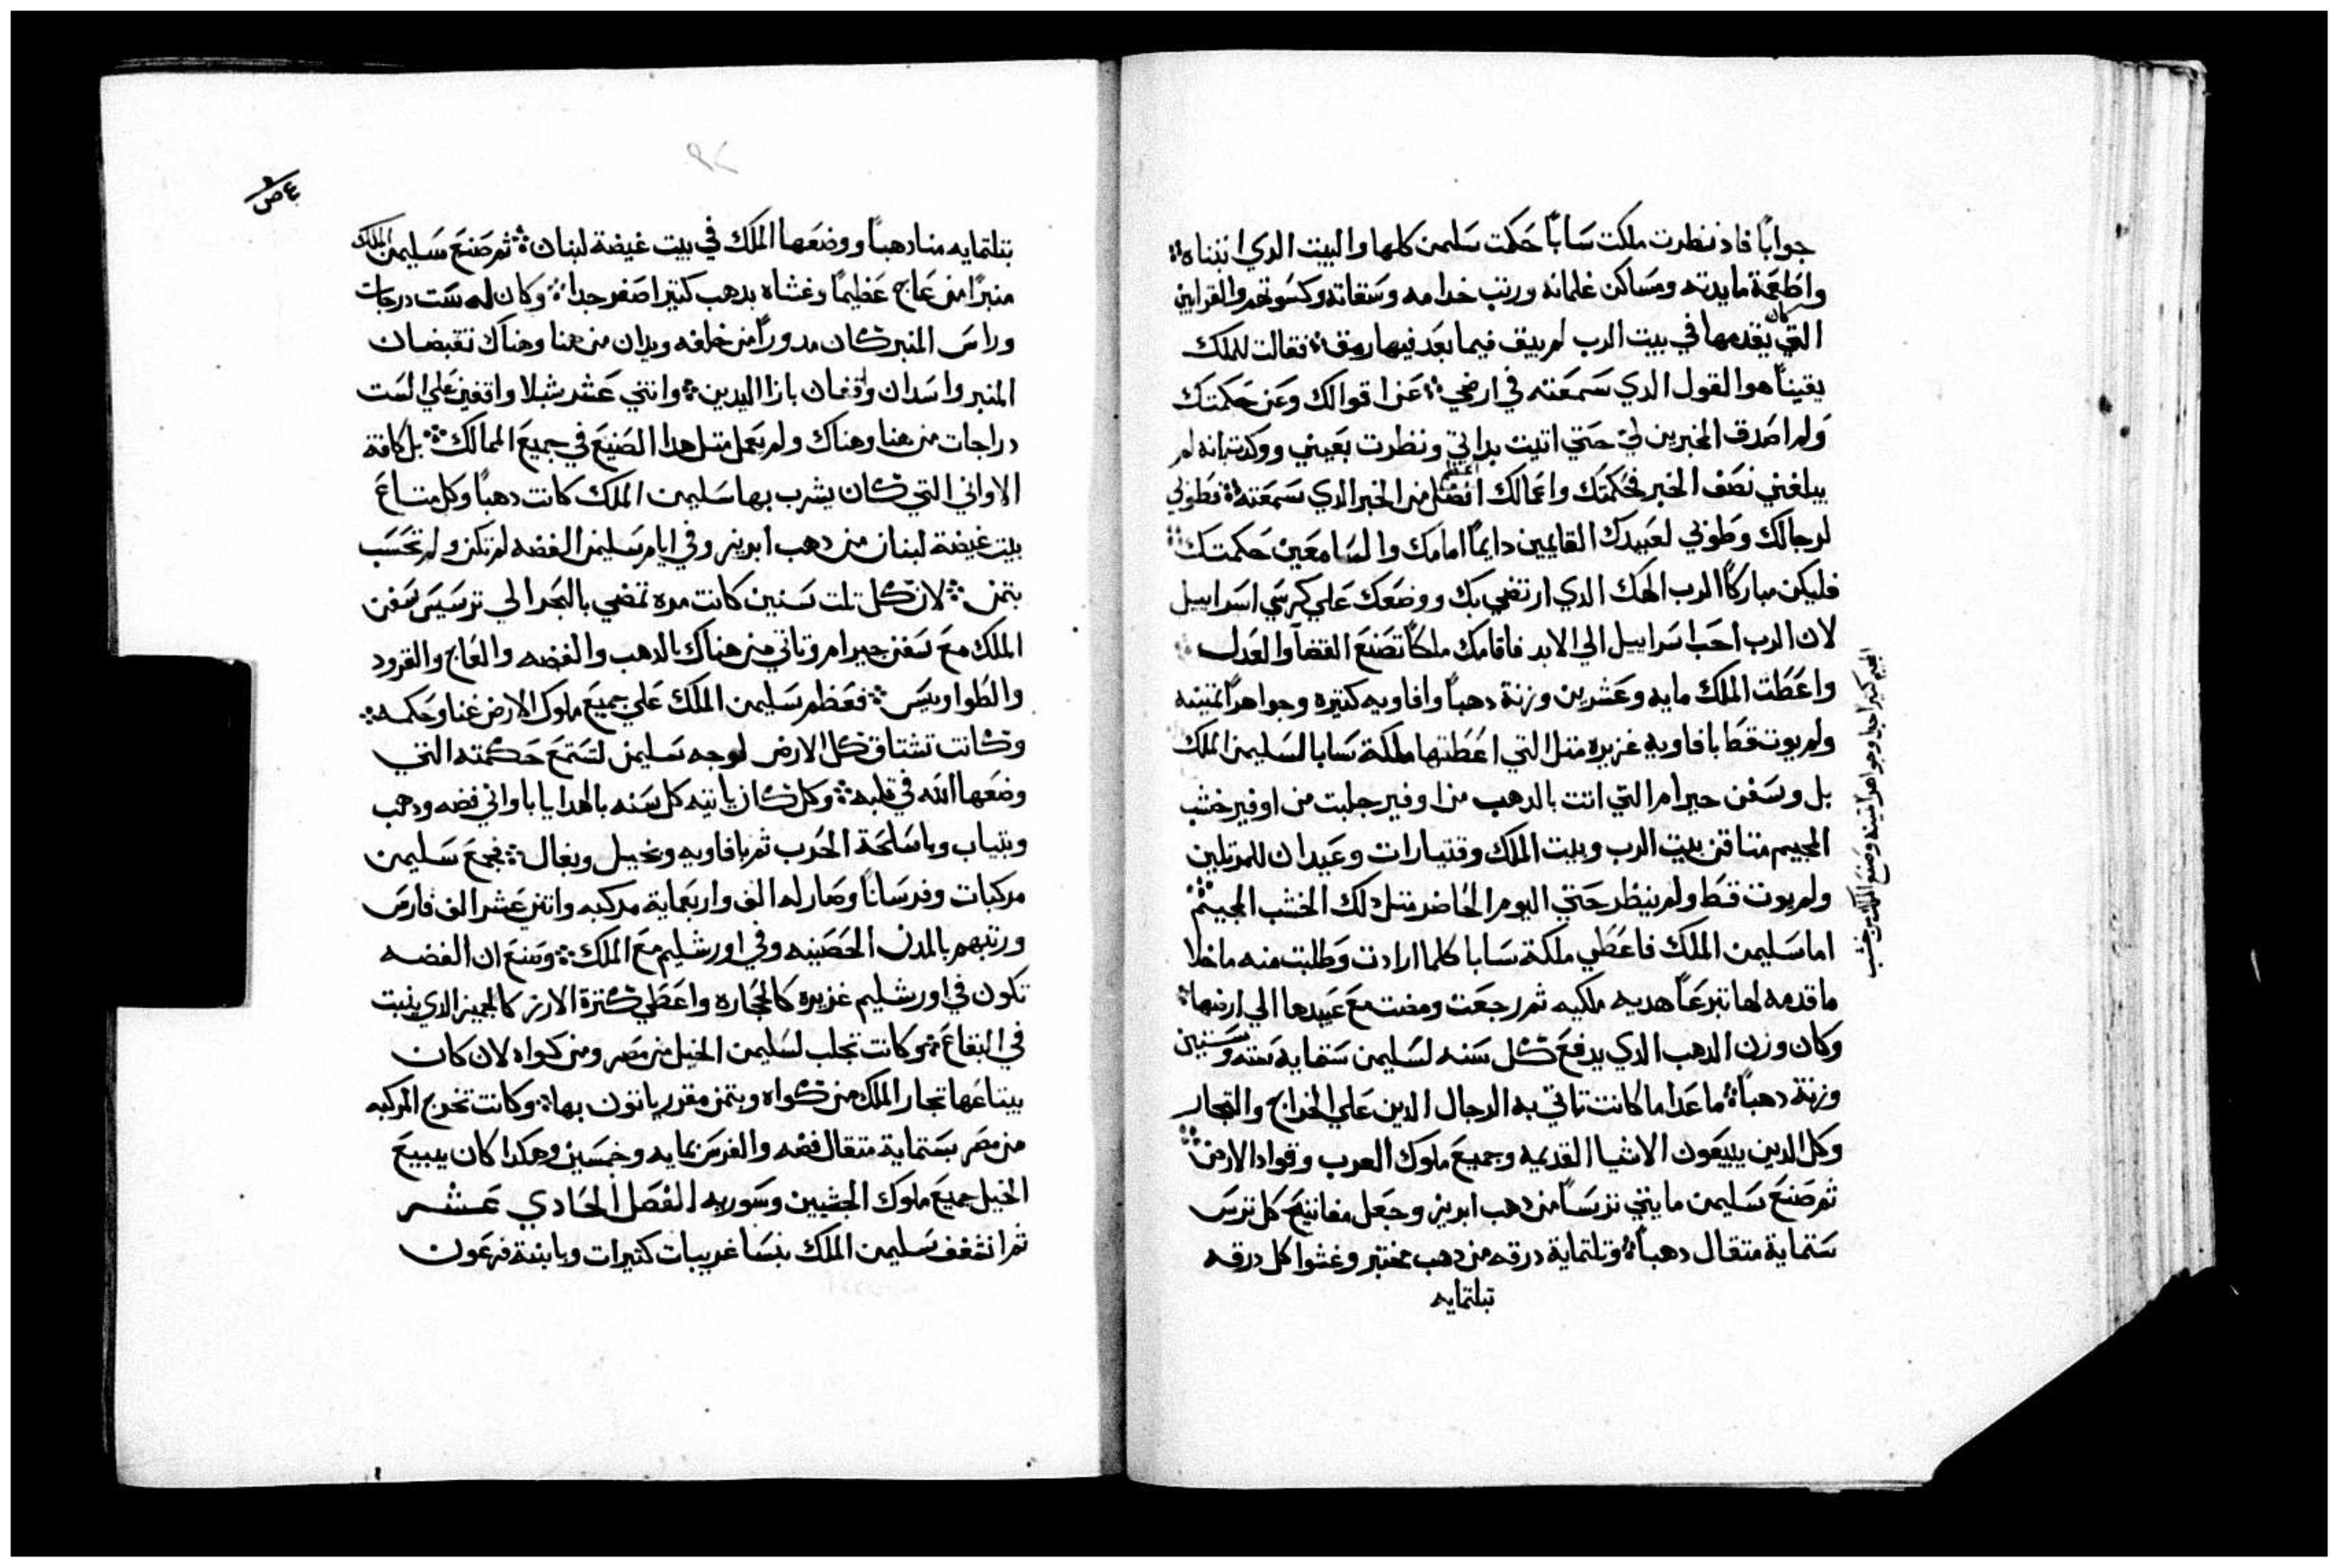 جواباً فاذ نظرت ملكت سَاباً حَكمت سَليمن كلها والبيت الدي ابتناه
واطَعمَة مايدته ومسَاكن غلمانه ورتب خدامه وسَقاته وكسَوتهم والقرابين
التي كان يقدمها في بيت الرب لم يبق فيما بعَد فيها رمق فقالت للملك
يقيناً هو القول الدي سَمعَته في ارضي عَن اقوالك وعَن حَكمتك
ولم اصَدق المخبرين لي حَتي اتيت بداتي ونظرت بعَيني ووكدت بانه لم
يبلغني نصَف الخبر فحَكمتك واعَمالك افضل من الخبر الدي سَمعَته فطَوبي
لرجالك وطَوبي لعَبيدك القايمين دايماً امامك والسَامعَين حَكمتك
فليكن مباركاً الرب الهك الدي ارتضي بك ووضعَك عَلي كرسَي اسَراييل
لان الرب احَب اسَراييل الي الابد فاقامك ملكاً تصَنعَ القضا والعَدل
واعَطَت الملك مايه وعَشرين وزنة دهباً وافاويه كتيره وجواهراً تمينه
ولم يوت قطَ بافاويه غزيره متل التي اعَطَتها ملكة سَابا لسَليمن الملك
بل وسَفن حيرام التي اتت بالدهب من اوفير جلبت من اوفير خشب
المجيم كتير جداً وجواهراً تمينه وصَنعَ الملك من خشب
المجيم متاقن بيت الرب وبيت الملك وقتيارات وعَيدان للمرتلين
ولم يوت قطَ ولم ينظر حَتي اليوم الحَاضر متل دلك الخشب المجيم
اما سَليمن الملك فاعَطَي ملكة سَابا كلما ارادت وطَلبت منه ما خلا
ما قدمه لها تبرعَاً هديه ملكيه ثم رجعَت ومضت معَ عَبيدها الي ارضها
وكان وزن الدهب الدي يدفعَ كل سَنه لسَليمن سَتمايه سَته وسَتين
وزنة دهباً ما عَدا ما كانت تاتي به الرجال الدين عَلي الخراج والتجار
وكل الدين يبيعَون الاشيا القديمه وجميعَ ملوك العَرب وقواد الارض
ثم صَنعَ سَليمن مايتي ترسَاً من دهب ابريز وجعَل مفاتيح كل ترسَ
سَتماية متقال دهباً وتلتماية درقه من دهب مختبر وغشوا كل درقه
تبلتمايه
٤ ص
٩٢
بتلتمايه منا دهباً ووضعَها الملك في بيت غيضة لبنان ثم صَنعَ سَليمن الملك
منبراً من عَاج عَظَيماً وغشاه بدهب كتير اصَفر جداً وكان له سَت درجات
وراسَ المنبر كان مدوراً من خلفه ويدان من هنا وهناك تقبضان
المنبر واسَدان واقفان بازا اليدين واتني عَشر شبلا واقفين عَلي السَت
دراجات من هنا وهناك ولم يعَمل متل هدا الصَنيعَ في جميعَ الممالك بل كافة
الاواني التي كان يشرب بها سَليمن الملك كانت دهباً وكل متاعَ
بيت غيضة لبنان من دهب ابريز وفي ايام سَليمن الفضه لم تكن ولم تحَسَب
بتمن لان كل تلت سَنين كانت مره تمضي بالبحَر الي ترسَيسَ سَفن
الملك معَ سَفن حيرام وتاتي من هناك بالدهب والفضه والعَاج والقرود
والطَواويسَ فعَظَم سَليمن الملك عَلي جميعَ ملوك الارض غنا وحَكمه
وكانت تشتاق كل الارض لوجه سَليمن لتسَتمعَ حَكمته التي
وضعَها الله في قلبه وكل كان ياتيه كل سَنه بالهدايا باواني فضه ودهب
وبتياب وباسَلحَة الحَرب ثم بافاويه وبخيل وبغال فجمعَ سَليمن
مركبات وفرسَاناً وصَار له الف واربعَماية مركبه واتني عَشر الف فارسَ
ورتبهم بالمدن الحَصَينه وفي اورشليم معَ الملك وصَنعَ ان الفضه
تكون في اورشليم غزيره كالحَجاره واعَطَي كترة الارز كالجميز الدي ينبت
في البقاعَ وكانت تجلب لسَليمن الخيل من مصَر ومن كواه لان كان
يبتاعَها تجار الملك من كواه وبتمن مقرر ياتون بها وكانت تخرج المركبه
من مصَر بسَتماية متقال فضه والفرسَ بمايه وخمسَين وهكدا كان يبيعَ
الخيل جميعَ ملوك الحَثيين وسَوريه الفصَل الحَادي عَشر
ثم انشغف سَليمن الملك بنسَا غريبات كتيرات وبابنة فرعَون